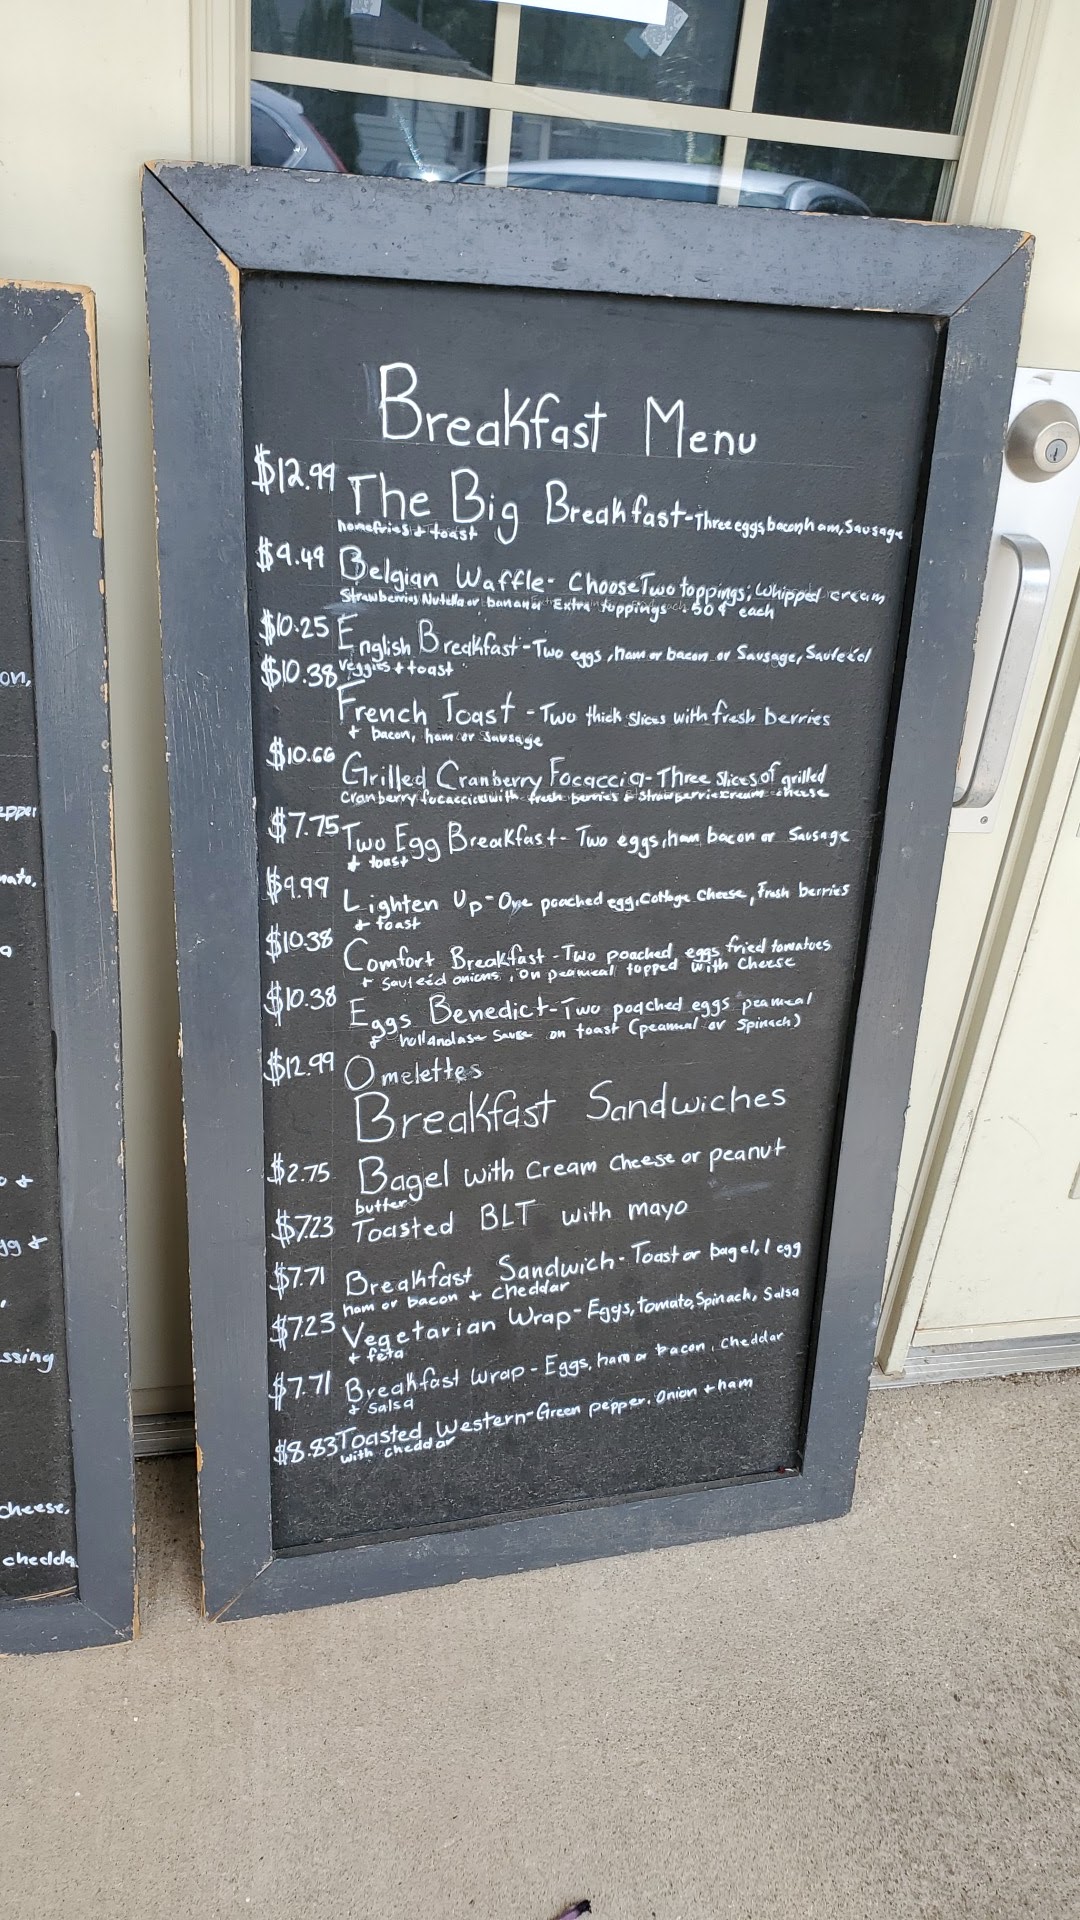 Breakfast Menu
$12.99 The Big Breakfast-Three eggs, bacon, ham, Sausage
homefries + toast
$9.49 Belgian Waffle- Choose Two toppings; Whipped cream
Strawberries Nutella or banana Extra toppings .50¢ each
$10.25 English Breakfast-Two eggs, ham or bacon or Sausage, Sauteéd
$10.38 veggies + toast
French Toast -Two thick slices with fresh berries
+ bacon, ham or Sausage
$10.66 Grilled Cranberry Focaccia-Three slices of grilled
Cranberry focaccia with fresh berries & Strawberrie cream cheese
$7.75 Two Egg Breakfast- Two eggs, ham, bacon or Sausage
+ toast
$9.99 Lighten Up-One poached egg, Cottage Cheese, Fresh berries
& toast
$10.38 Comfort Breakfast-Two poached eggs fried tomatoes
+ Sauteéd onions, on peameal topped with Cheese
$10.38 Eggs Benedict-Two poached eggs peameal
& hollandase Sause on toast (peameal or Spinach)
$12.99 Omelettes
Breakfast Sandwiches
$2.75 Bagel with cream cheese or peanut
butter
$7.23 Toasted BLT with mayo
$7.71 Breakfast Sandwich-Toast or bagel, 1 egg
ham or bacon + cheddar
$7.23 Vegetarian Wrap-Eggs, tomato, Spinach, Salsa
+ feta
$7.71 Breakfast Wrap-Eggs, ham or bacon, cheddar
& Salsa
$8.83 Toasted Western-Green pepper, Onion + ham
with cheddar
on,
epper
mato,
a
o +
gg &
ssing
cheese,
chedda